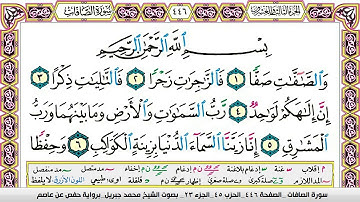 الجزء الثالث والعشرون ٤٤٦ سورة الصافات
بِسْمِ اللَّهِ الرَّحْمَٰنِ الرَّحِيمِ
وَالصَّافَّاتِ صَفًّا ١ فَالزَّاجِرَاتِ زَجْرًا ٢ فَالتَّالِيَاتِ ذِكْرًا ٣
إِنَّ إِلَٰهَكُمْ لَوَاحِدٌ ٤ رَبُّ السَّمَاوَاتِ وَالْأَرْضِ وَمَا بَيْنَهُمَا وَرَبُّ
الْمَشَارِقِ ٥ إِنَّا زَيَّنَّا السَّمَاءَ الدُّنْيَا بِزِينَةٍ الْكَوَاكِبِ ٦ وَحِفْظًا
سورة الصافات، الصفحة ٤٤٦، الحزب ٤٥، الجزء ٢٣، بصوت الشيخ محمد جبريل، برواية حفص عن عاصم